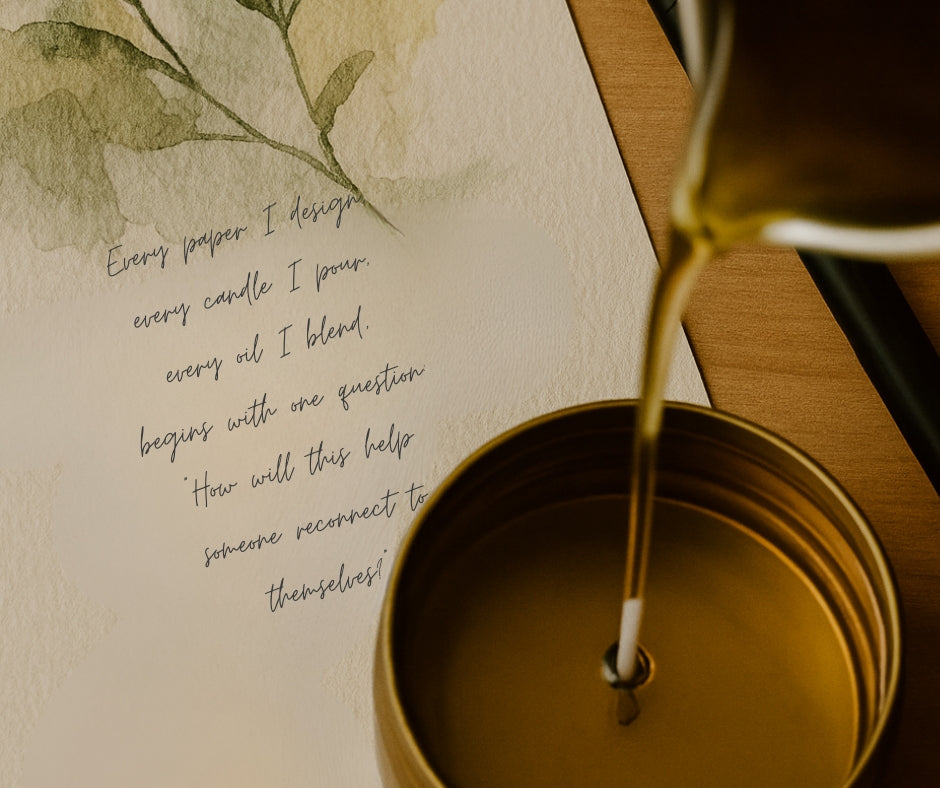 Every paper I design,
every candle I pour,
every oil I blend,
begins with one question:
"How will this help
someone reconnect to
themselves?"